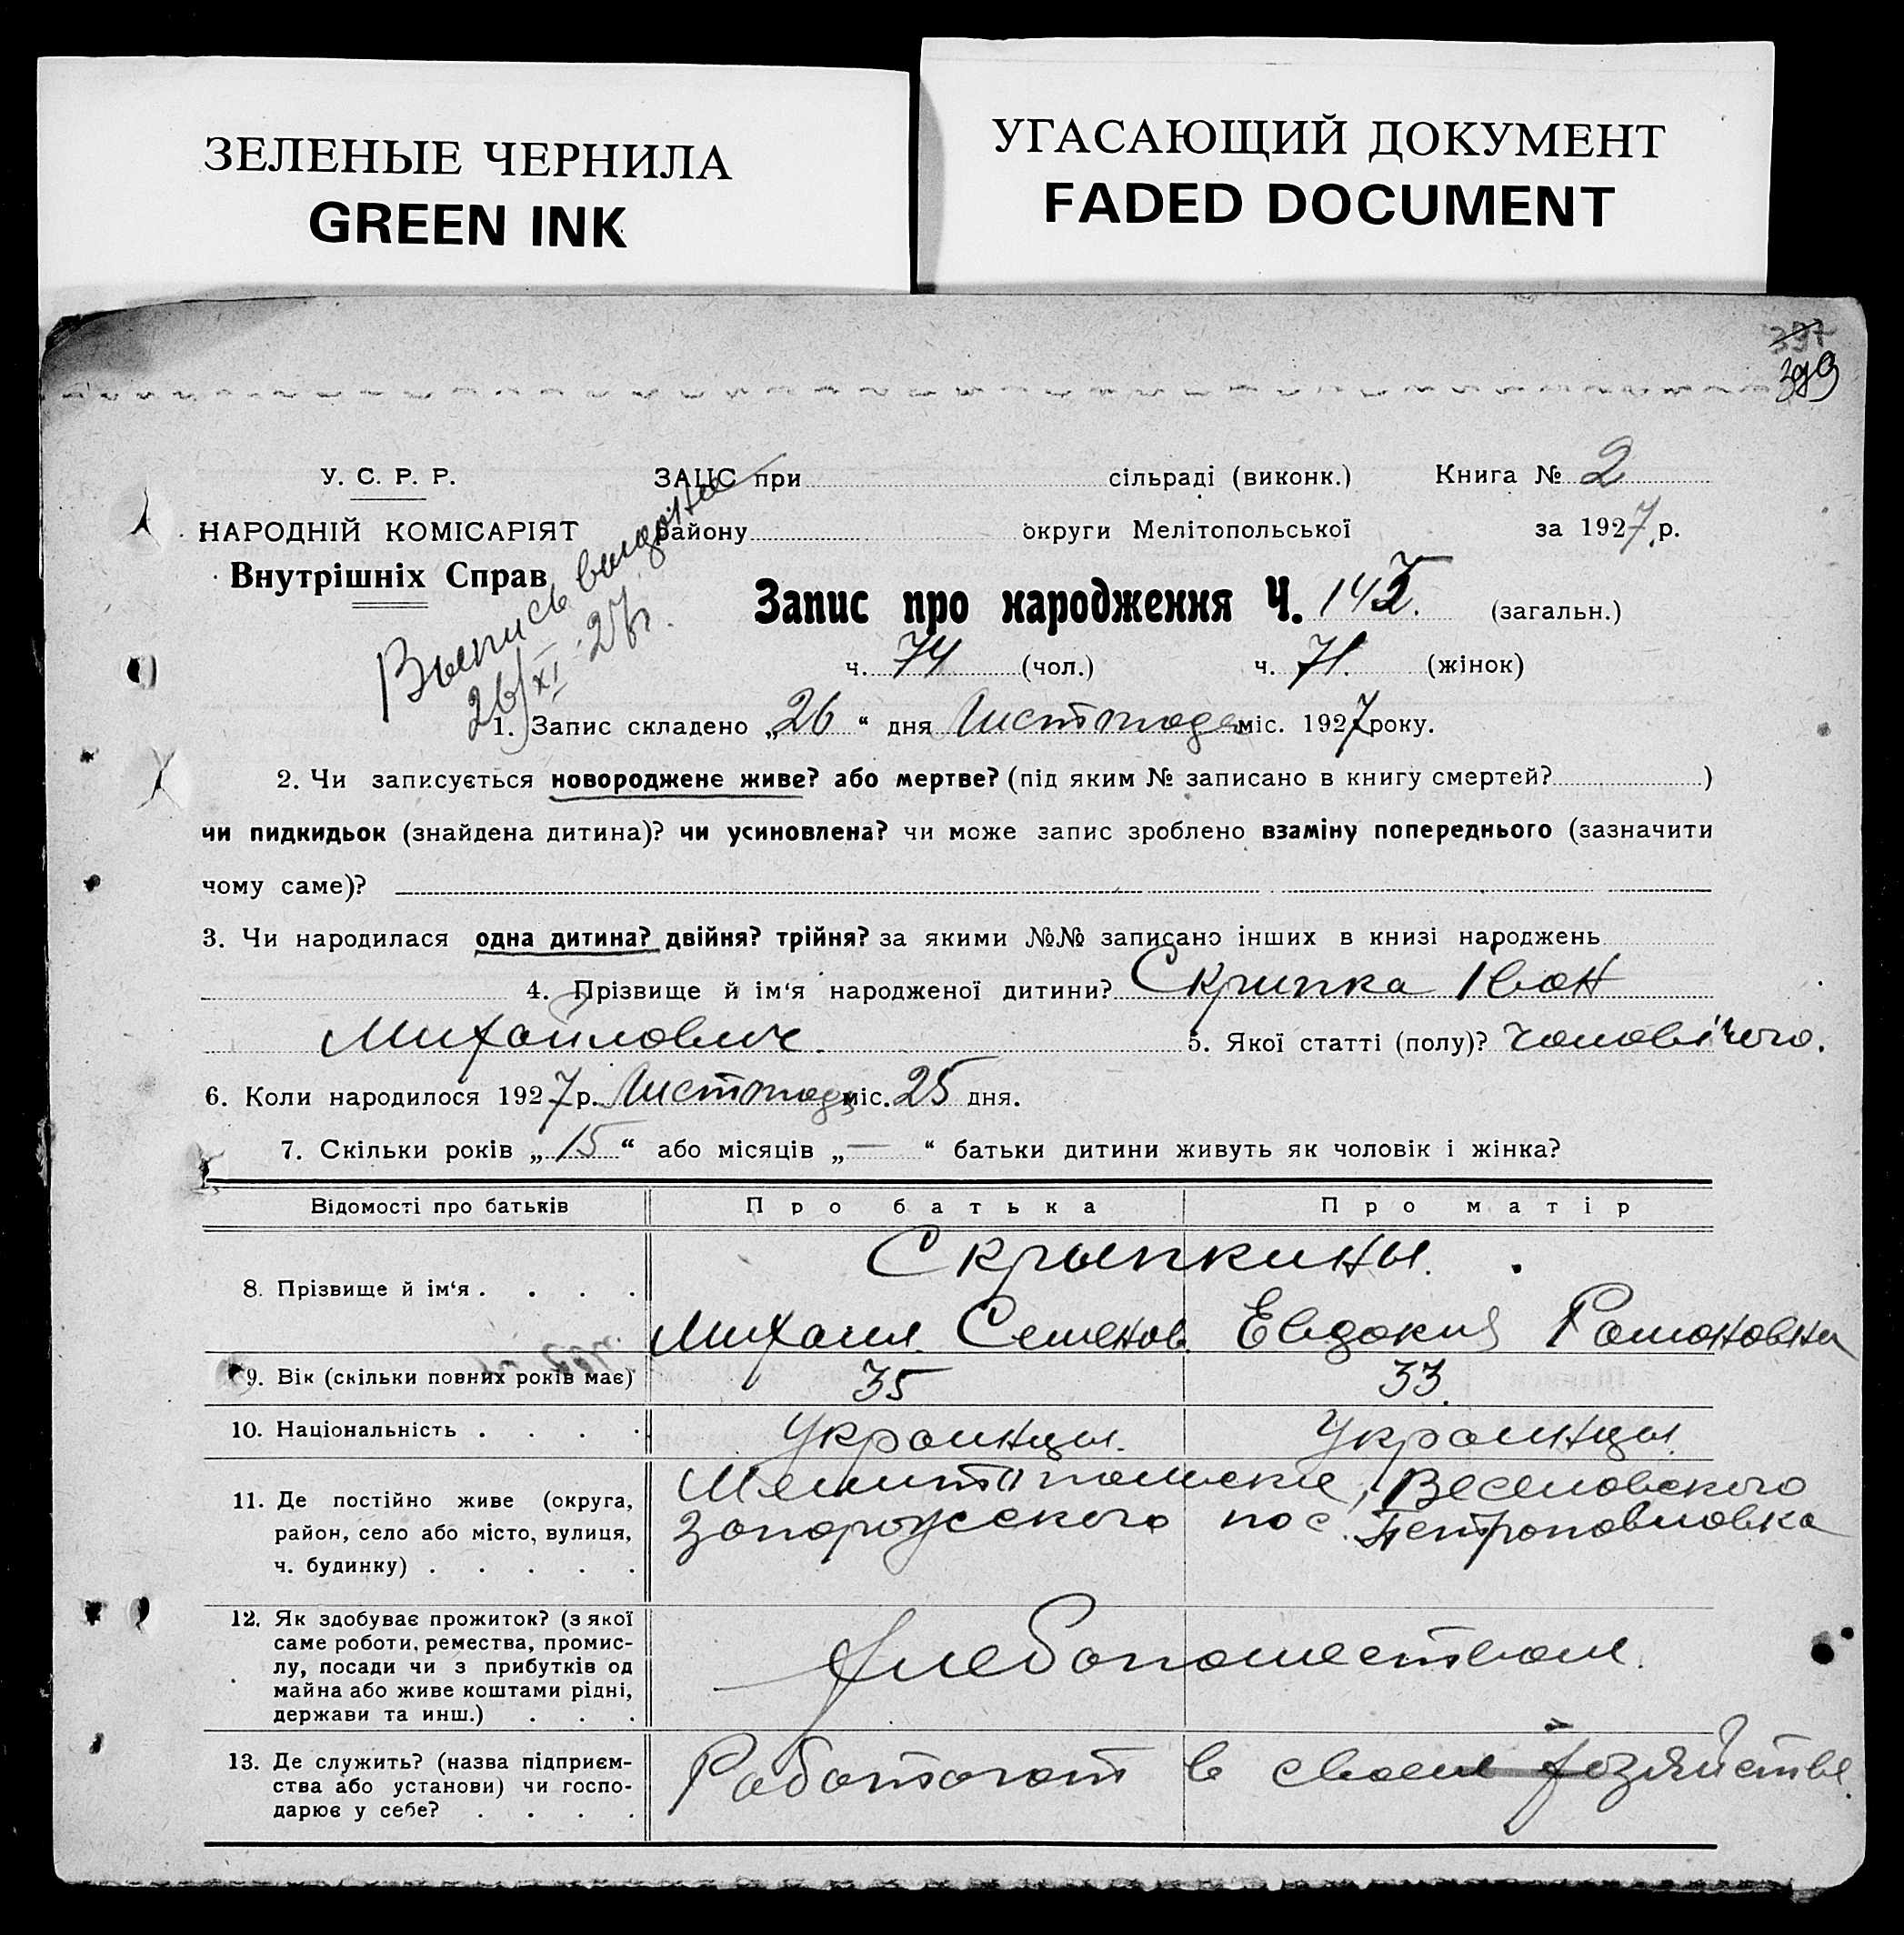 ЗЕЛЕНЫЕ ЧЕРНИЛА
GREEN INK
УГАСАЮЩИЙ ДОКУМЕНТ
FADED DOCUMENT
397
399
У. С. Р. Р.
НАРОДНІЙ КОМІСАРІЯТ
Внутрішніх Справ
Выпись выдана
26/XI 27г.
ЗАЦС при сільраді (виконк.) Книга № 2
району округи Мелітопольської за 1927 р.
Запис про народження Ч. 145. (загальн.)
ч. 74 (чол.) ч. 71. (жінок)
1. Запис складено „26“ дня Листопада міс. 1927 року.
2. Чи записується новороджене живе? або мертве? (під яким № записано в книгу смертей? )
чи пидкидьок (знайдена дитина)? чи усиновлена? чи може запис зроблено взаміну попереднього (зазначити
чому саме)?
3. Чи народилася одна дитина? двійня? трійня? за якими №№ записано інших в книзі народжень
4. Прізвище й ім‘я народженої дитини? Скрипка Іван
Михайлович. 5. Якої статті (полу)? Чоловічого.
6. Коли народилося 1927 р. Листопада міс. 25 дня.
7. Скільки років „15“ або місяців „—“ батьки дитини живуть як чоловік і жінка?
Відомості про батьків Про батька Про матір
8. Прізвище й ім‘я . . . . Скрыпкины.
Михаил Семенов. Евдокия Романовна
9. Вік (скільки повних років має) 35 33.
10. Національність . . . . Украинцы. Украинцы.
11. Де постійно живе (округа,
район, село або місто, вулиця,
ч. будинку) . . . . .
Мелитопольские, Веселовского
Запорожского пос. Петропавловка
12. Як здобуває прожиток? (з якої
саме роботи, ремества, промис-
лу, посади чи з прибутків од
майна або живе коштами рідні,
держави та инш.) . . .
Хлебопашеством.
13. Де служить? (назва підприєм-
ства або установи) чи госпо-
дарює у себе? . . . .
Работают в своем хозяйстве.